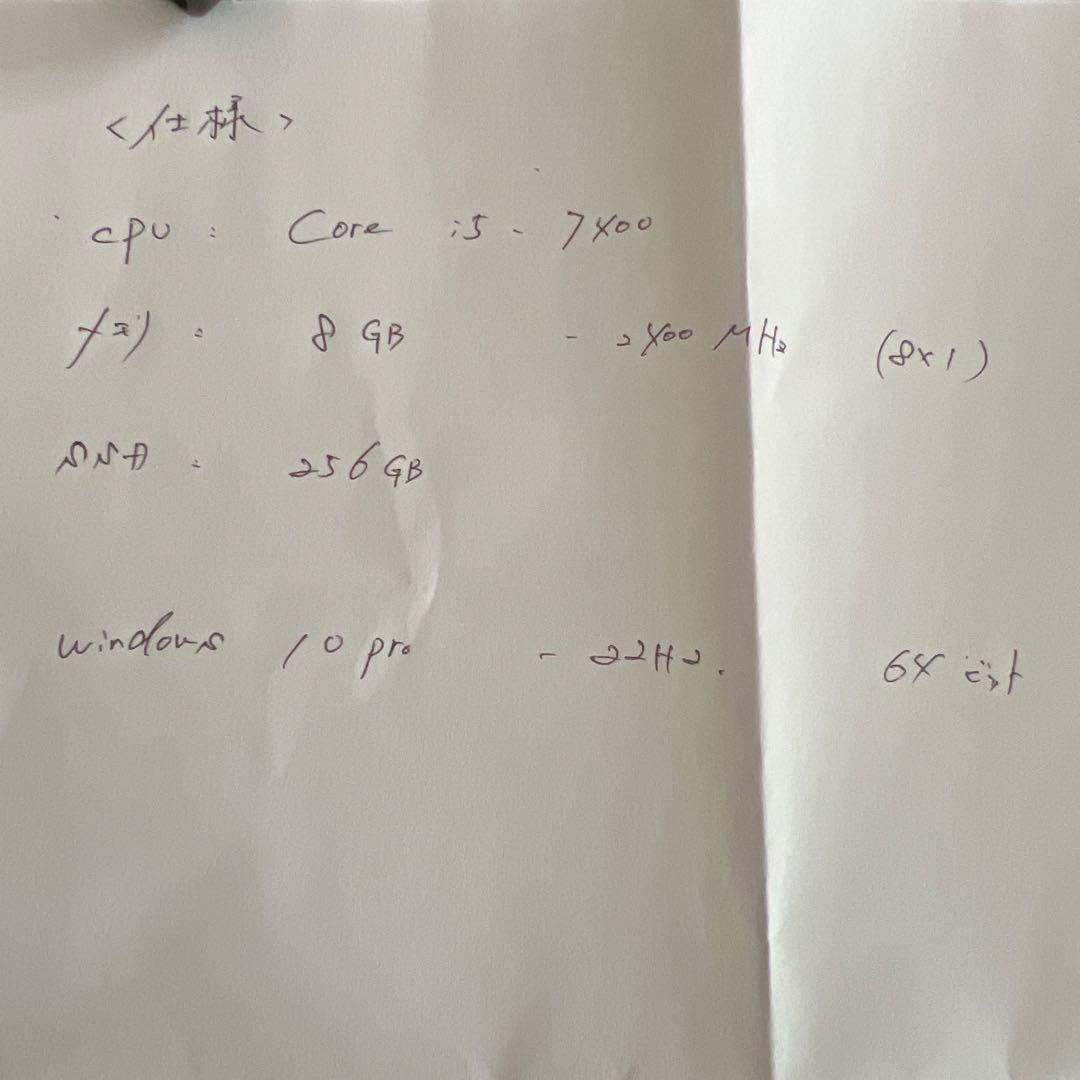 <仕様>
CPU : Core i5 - 7400
メモリ : 8 GB - 2400 MHz (8×1)
SSD : 256 GB
Windows 10 pro - 22H2. 64 ビット